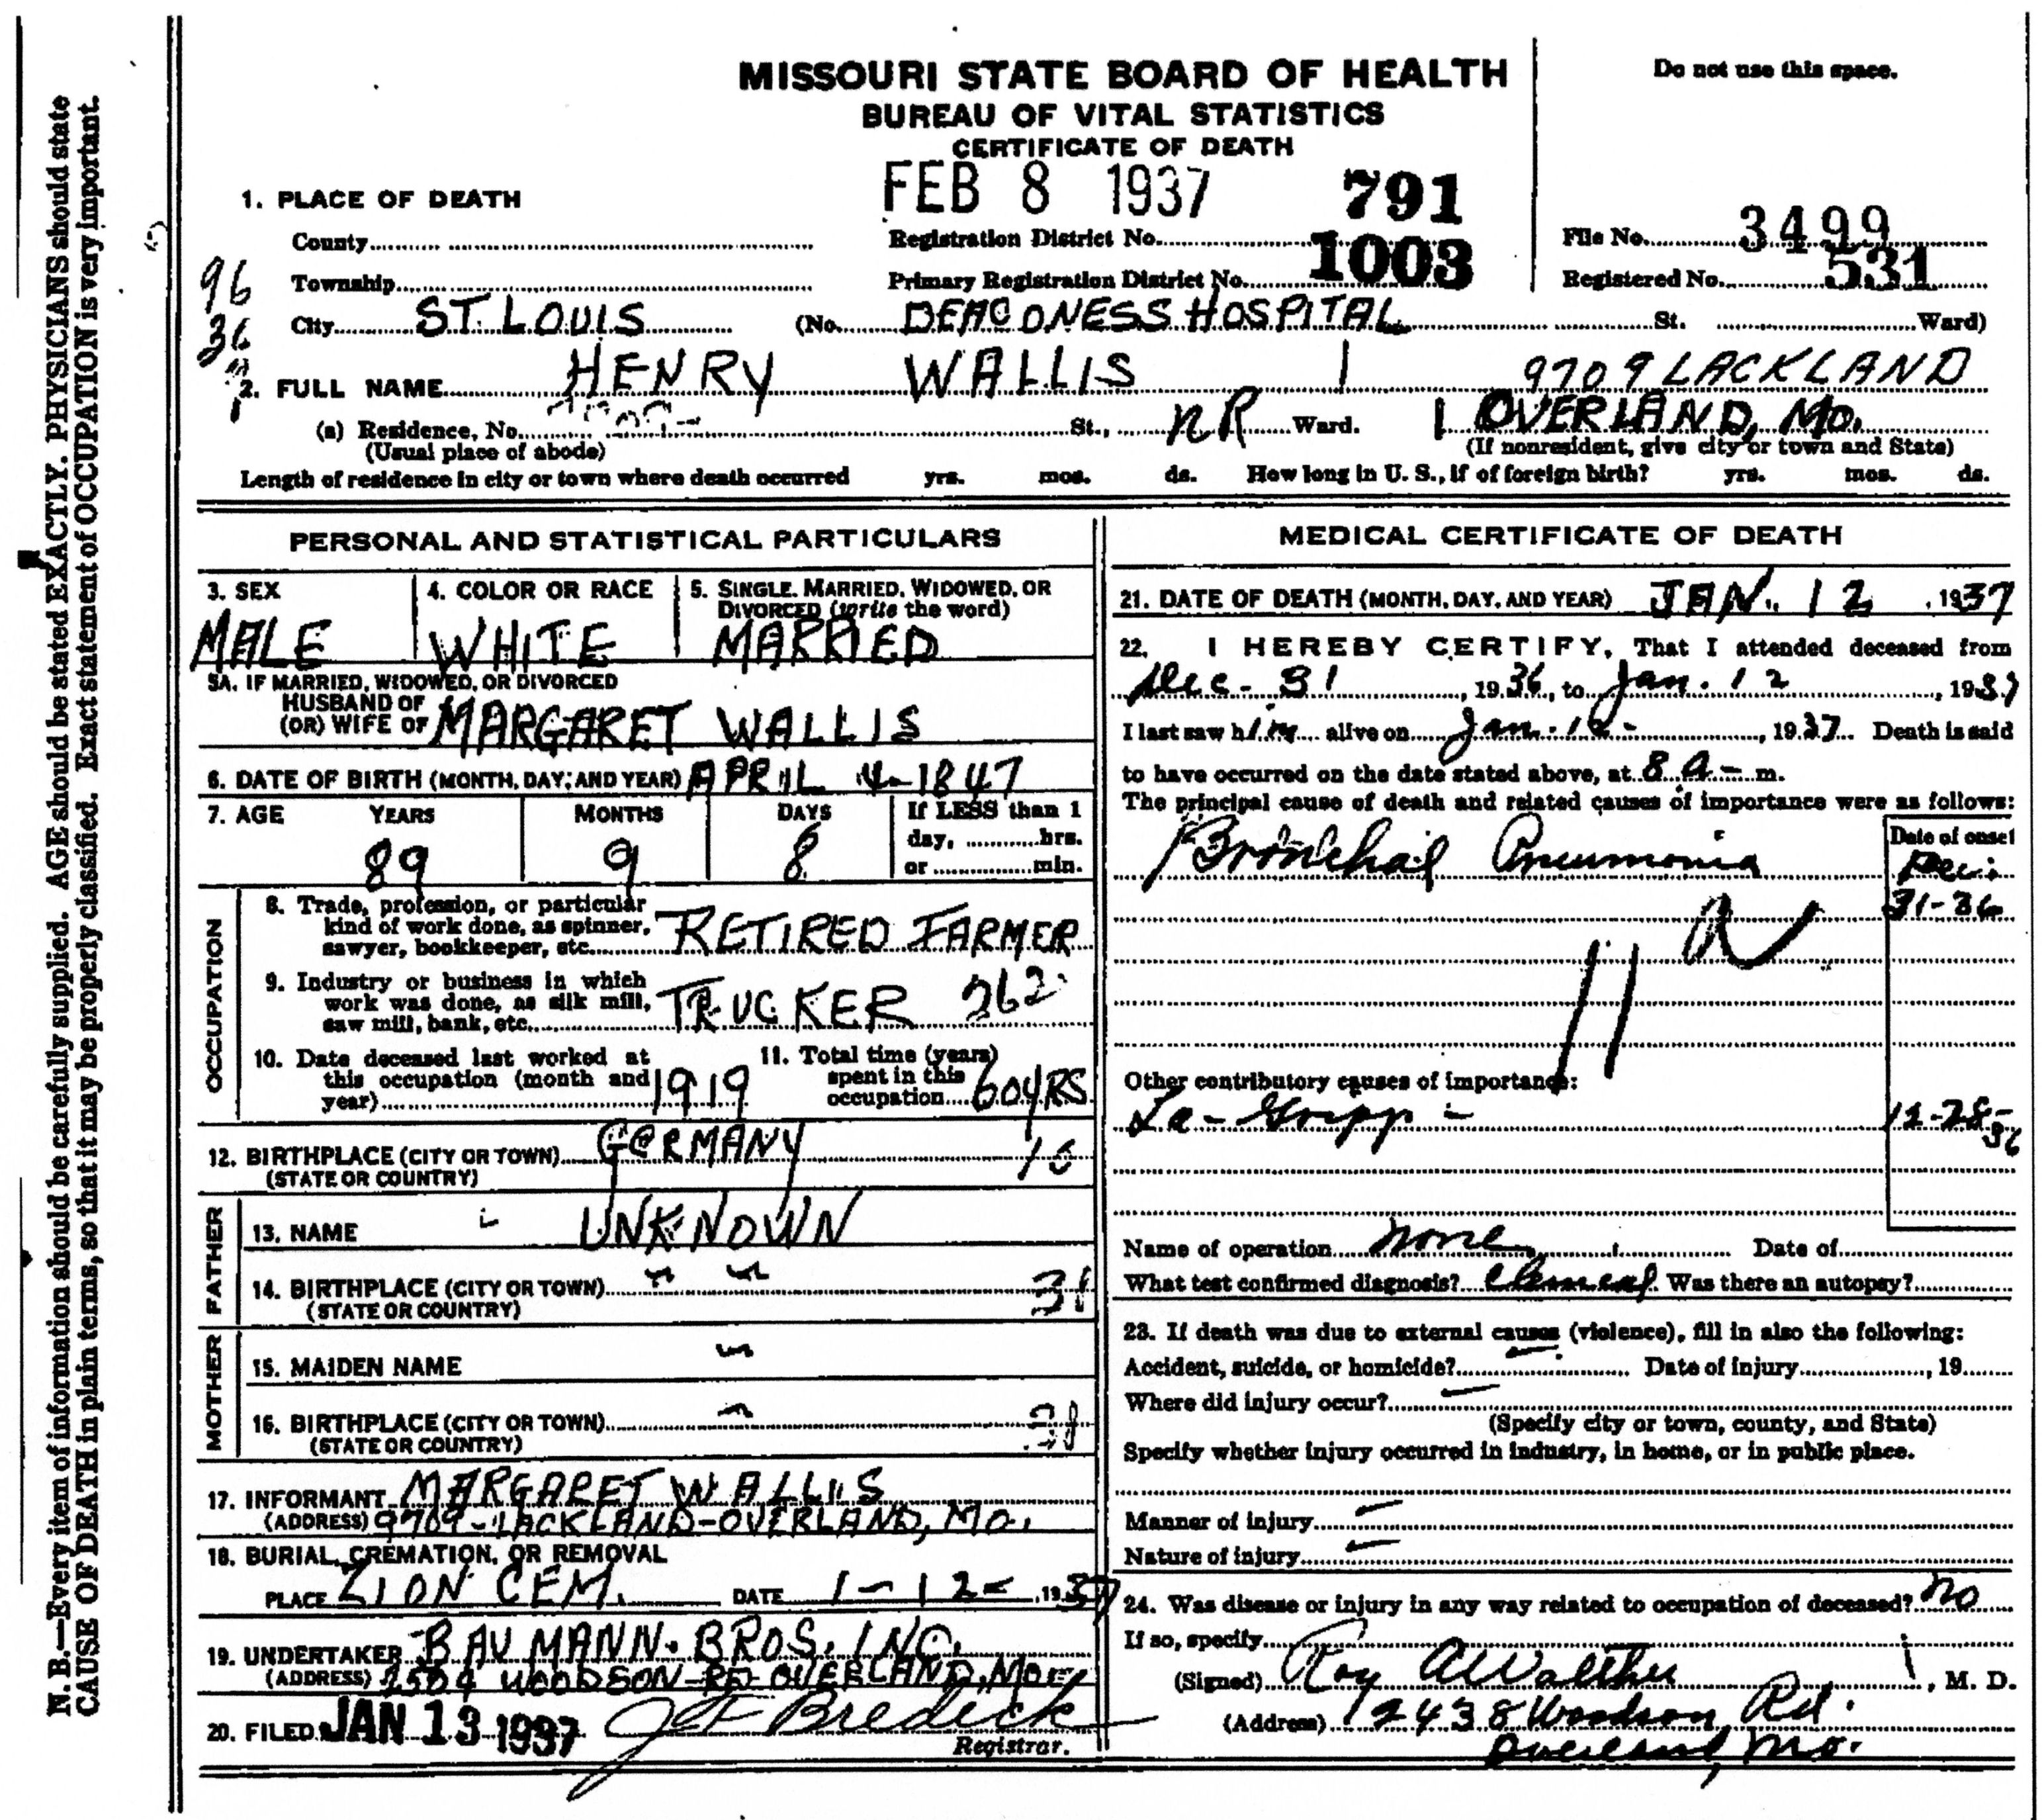 N. B.—Every item of information should be carefully supplied. AGE should be stated EXACTLY. PHYSICIANS should state
CAUSE OF DEATH in plain terms, so that it may be properly classified. Exact statement of OCCUPATION is very important.
MISSOURI STATE BOARD OF HEALTH
BUREAU OF VITAL STATISTICS
CERTIFICATE OF DEATH
Do not use this space.
FEB 8 1937
1. PLACE OF DEATH
County
Registration District No. 791
File No. 3499
Township
Primary Registration District No. 1003
Registered No. 531
96
36
City ST. LOUIS (No. DEACONESS HOSPITAL St. Ward)
2. FULL NAME HENRY WALLIS 9709 LACKLAND
(a) Residence, No. St., NR Ward. OVERLAND, MO.
(Usual place of abode) (If nonresident, give city or town and State)
Length of residence in city or town where death occurred yrs. mos. ds. How long in U. S., if of foreign birth? yrs. mos. ds.
PERSONAL AND STATISTICAL PARTICULARS
3. SEX MALE
4. COLOR OR RACE WHITE
5. SINGLE, MARRIED, WIDOWED, OR
DIVORCED (write the word)
MARRIED
5A. IF MARRIED, WIDOWED, OR DIVORCED
HUSBAND OF
(OR) WIFE OF MARGARET WALLIS
6. DATE OF BIRTH (MONTH, DAY, AND YEAR) APRIL 4-1847
7. AGE YEARS MONTHS DAYS If LESS than 1
day, hrs.
or min.
89 9 8
OCCUPATION
8. Trade, profession, or particular
kind of work done, as spinner,
sawyer, bookkeeper, etc. RETIRED FARMER
9. Industry or business in which
work was done, as silk mill,
saw mill, bank, etc. TRUCKER 262
10. Date deceased last worked at
this occupation (month and
year) 1919
11. Total time (years)
spent in this
occupation 60 YRS
12. BIRTHPLACE (CITY OR TOWN) GERMANY
(STATE OR COUNTRY)
FATHER
13. NAME UNKNOWN
14. BIRTHPLACE (CITY OR TOWN) " " 31
(STATE OR COUNTRY)
MOTHER
15. MAIDEN NAME "
16. BIRTHPLACE (CITY OR TOWN) "
(STATE OR COUNTRY)
17. INFORMANT MARGARET WALLIS
(ADDRESS) 9709-LACKLAND-OVERLAND, MO.
18. BURIAL, CREMATION, OR REMOVAL
PLACE ZION CEM. DATE 1-12- 1937
19. UNDERTAKER BAUMANN BROS. INC.
(ADDRESS) 2504 WOODSON-RD OVERLAND, MO
20. FILED JAN 13 1937 J F Bredeck
Registrar.
MEDICAL CERTIFICATE OF DEATH
21. DATE OF DEATH (MONTH, DAY, AND YEAR) JAN. 12, 1937
22. I HEREBY CERTIFY, That I attended deceased from
Dec- 31, 1936, to Jan. 12, 1937
I last saw him alive on Jan. 12-, 1937. Death is said
to have occurred on the date stated above, at 8 a- m.
The principal cause of death and related causes of importance were as follows:
Date of onset
Bronchial Pneumonia Dec.
31-36
11
Other contributory causes of importance:
La-Gripp- 12-28-
36
Name of operation none Date of
What test confirmed diagnosis? Clinical Was there an autopsy?
23. If death was due to external causes (violence), fill in also the following:
Accident, suicide, or homicide? Date of injury , 19
Where did injury occur?
(Specify city or town, county, and State)
Specify whether injury occurred in industry, in home, or in public place.
Manner of injury
Nature of injury
24. Was disease or injury in any way related to occupation of deceased? no
If so, specify
(Signed) Roy A Walther, M. D.
(Address) 2438 Woodson Rd.
Overland, Mo.